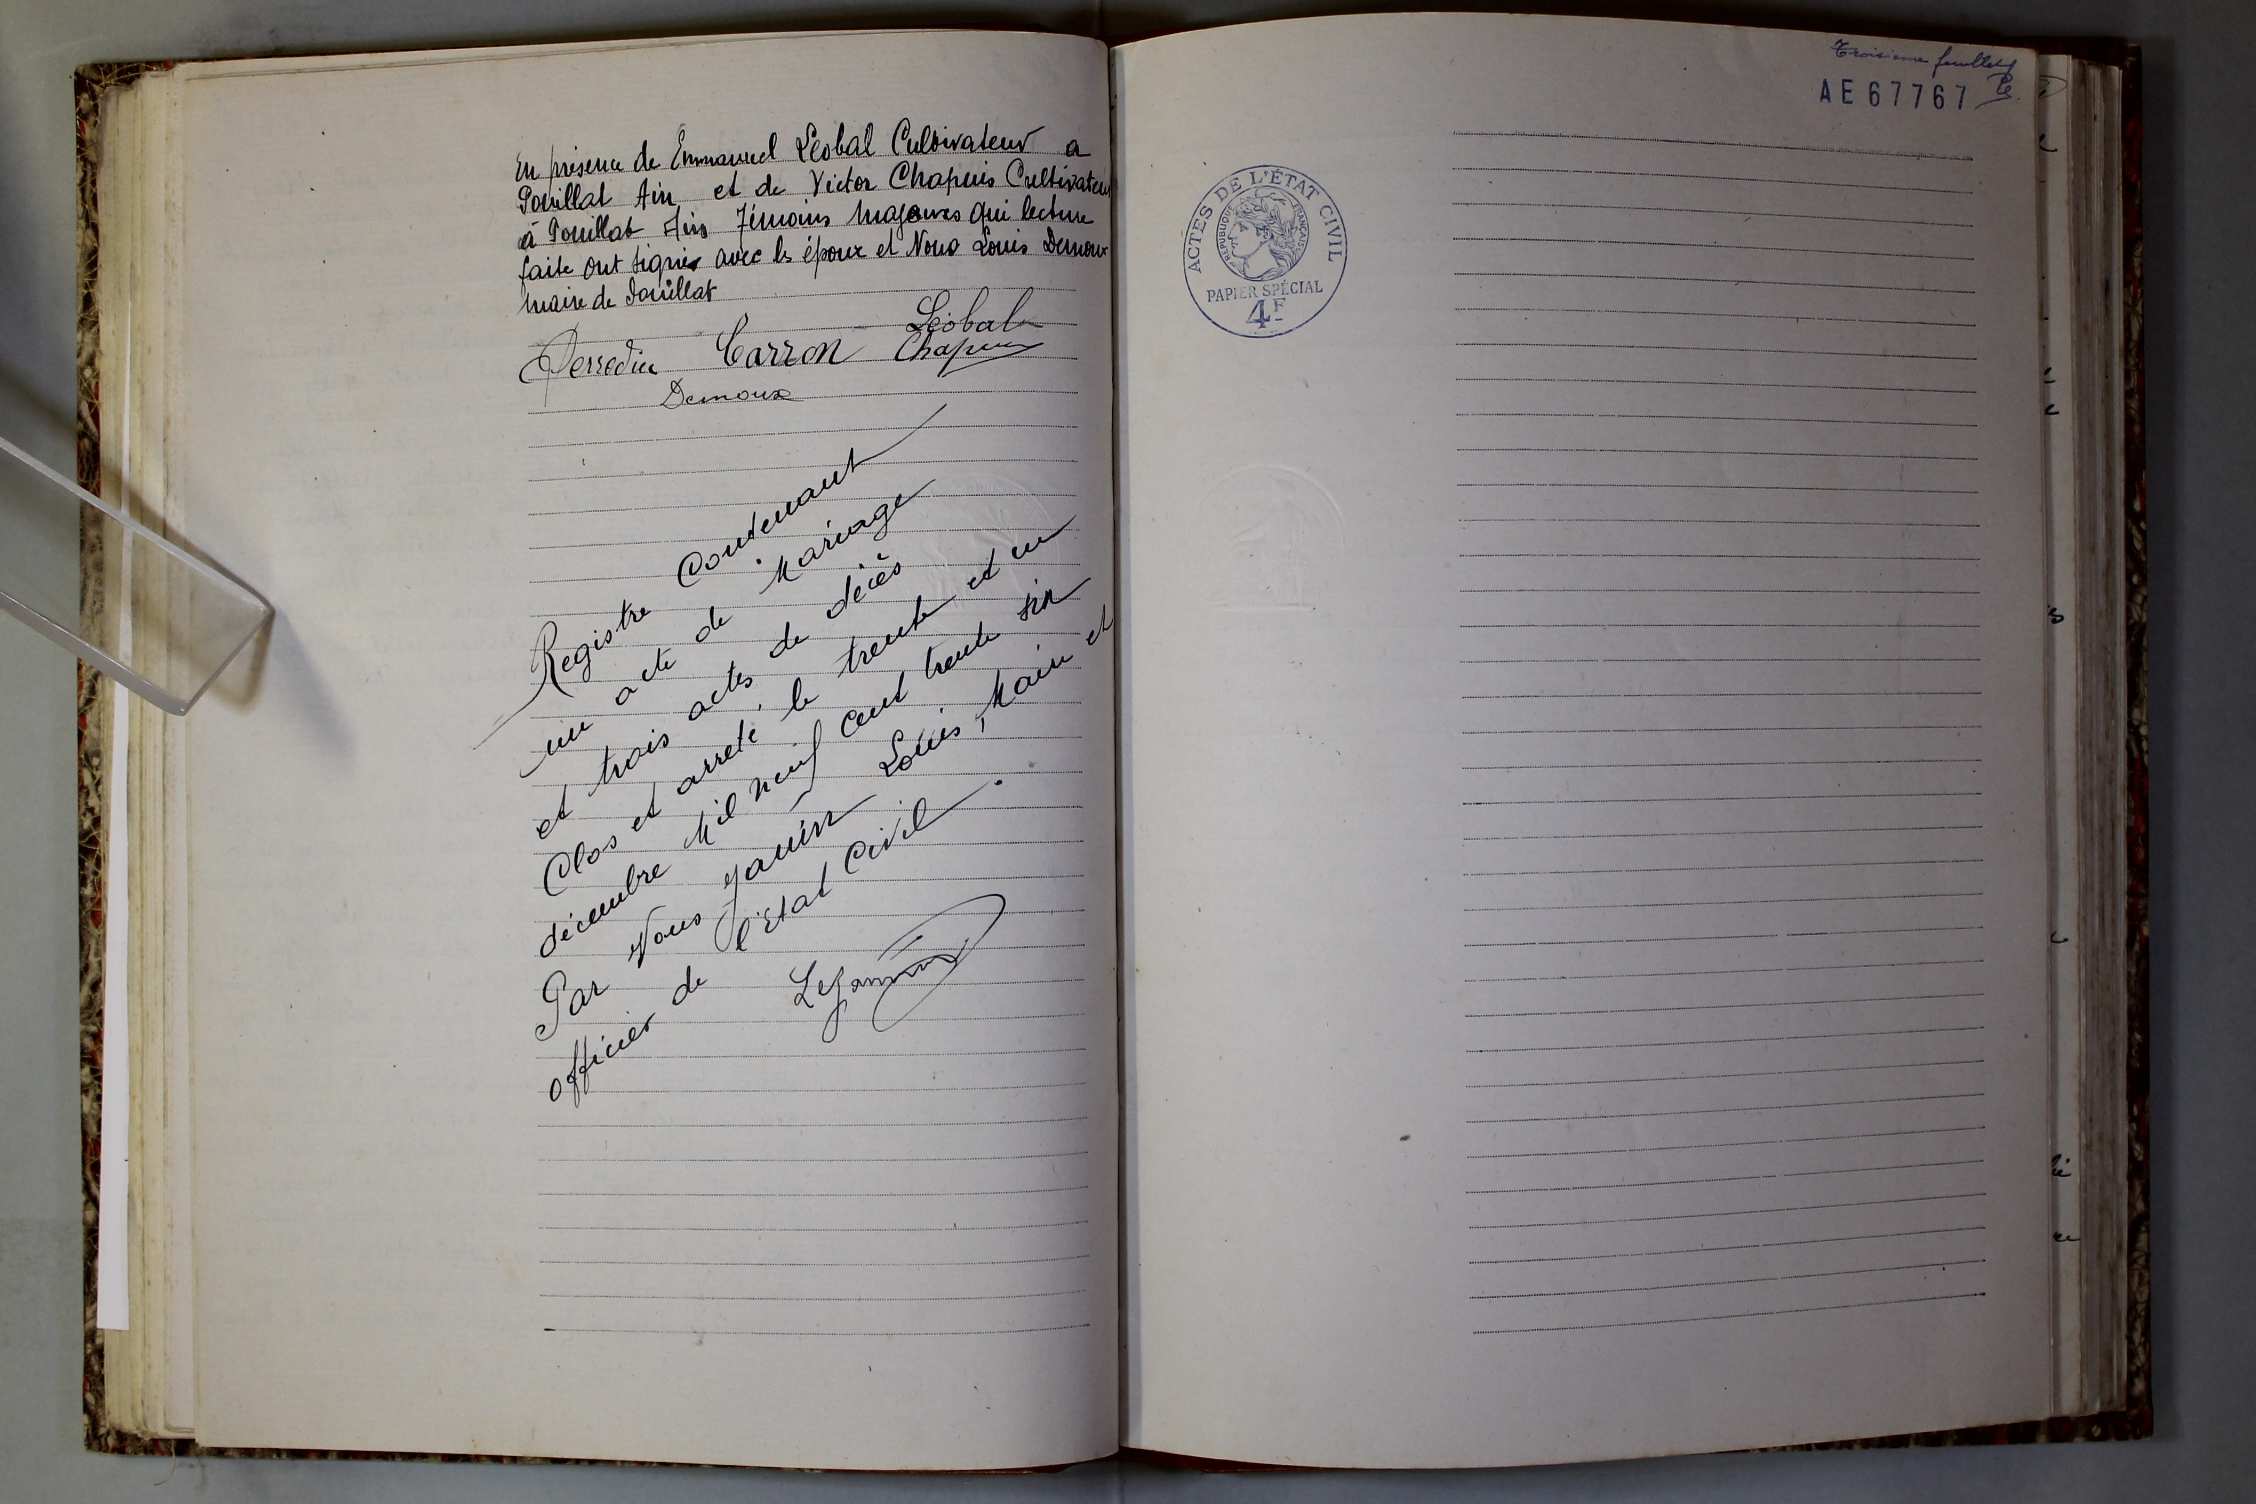 En présence de Emmanuel Léobal Cultivateur a
Pouillat Ain et de Victor Chapuis Cultivateur
à Pouillat Ain Témoins majeures qui lecture
faite ont signés avec les époux et Nous Louis Demoux
maire de Pouillat
Léobal
Perrodin Carron Chapuis
Demoux
Registre Contenant
un acte de Mariage
et trois actes de décès
Clos et arrêté, le trente et un
décembre Mil neuf cent trente six
Par Nous Janin Louis, Maire et
officier de l'Etat Civil.
Troisième feuillet
AE67767
ACTES DE L'ÉTAT CIVIL
RÉPUBLIQUE FRANÇAISE
PAPIER SPÉCIAL
4F